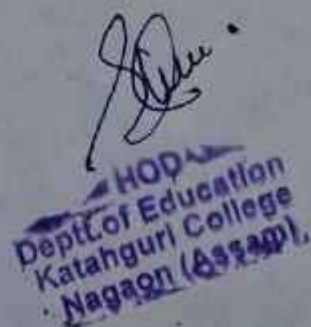 HOD
Deptt.of Education
Katahguri College
Nagaon (Assam).